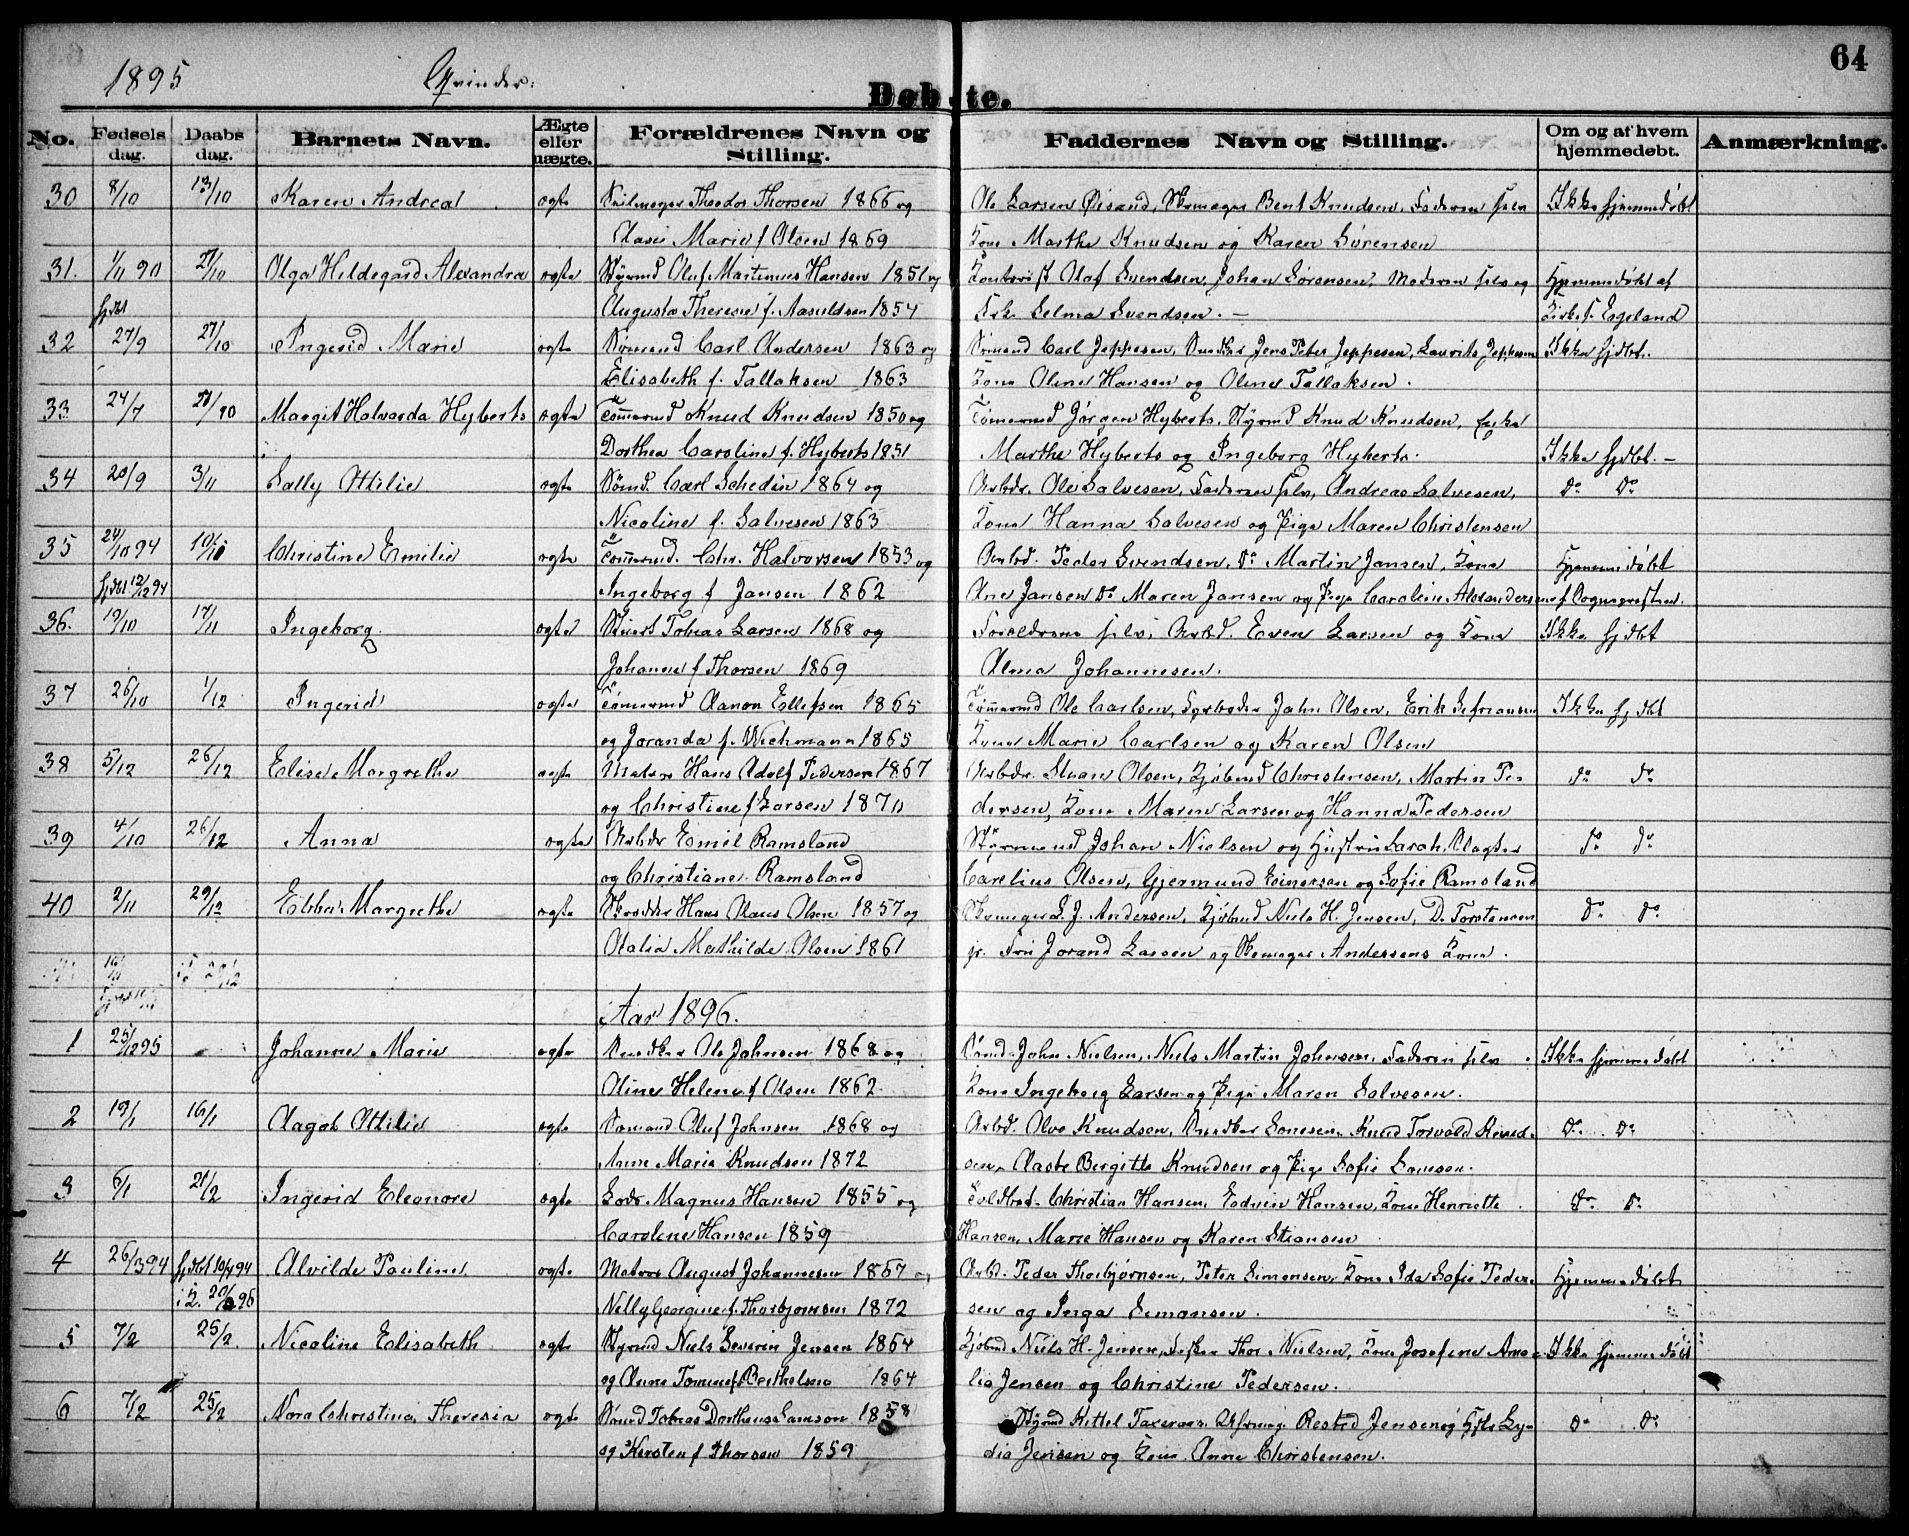 64
1895 Qvinder:
Døbte.
No. Fødsels dag. Daabs dag. Barnets Navn. Ægte eller uægte. Forældrenes Navn og Stilling. Faddernes Navn og Stilling. Om og af hvem hjemmedøbt. Anmærkning.
30 8/10 13/10 Karen Andrea ægte Theodor Thorsen 1866 og Ole Larsen Øisand, Skomager Bent Knudsen, Faderen selv Ikke hjemmedøbt
Marie f. Olsen 1869 Kone Marthe Knudsen og Karen Sørensen
31. 1/11 90 27/10 Olga Hildegard Alexandra ægte Styrmd Oluf Martinius Hansen 1851 og Olaf Svendsen, Johan Sørensen, Moderen selv og Hjemmedøbt af
hjdbt Augusta Therese f. 1854 Frk. Selma Svendsen. — Egeland
32 27/9 27/10 Ingerid Marie ægte Sømand Carl Andersen 1863 og Sømand Carl Jeppesen, Snedker Jens Peter Jeppesen, Laurits Jeppesen Ikke hjdbt.
Elisabeth f. Tallaksen 1863 Kone Oline Hansen og Oline Tallaksen.
33 24/7 27/10 Margit Halvarda Hyberts ægte Tømmermd Knud Knudsen 1850 og Tømmermd Jørgen Hyberts, Styrmd Knud Knudsen, Enke
Dorthea Caroline f. Hyberts 1851 Marthe Hyberts og Ingeborg Hyberts. Ikke hjdbt. —
34 20/9 3/11 Sally Ottilie ægte Sømd. Carl Schedin 1864 og Arbdr. Ole Salvesen, Faderen selv, Andreas Salvesen, do do
Nicoline f. Salvesen 1863 Kone Hanna Salvesen og Pige Maren Christensen
35 24/10 94 10/11 Christine Emilie ægte Tømmermd. Chr. Halvorsen 1853 og Arbd. Peder Svendsen, do Martin Jansen, Kone Hjemmedøbt
hjdbt 12/12 94 Ingeborg f. Jansen 1862 Ane Jansen do Maren Jansen og Pige Caroline Alexandersen af Sognepræsten.
36. 19/10 17/11 Ingeborg. ægte Stuert Tobias Larsen 1868 og Forældrene selv, Arbd. Even Larsen og Kone Ikke hjdbt
Johanne f. Thorsen 1869 Alma Johannesen.
37 26/10 1/12 Ingerid ægte Tømmermd Aanon Ellefsen 1865 Tømmermd Ole Carlsen, Fyrbøder John Olsen, Erik Ikke hjdbt
og Joranda f. Wichmann 1865 Kone Marie Carlsen og Karen Olsen
38 5/12 26/12 Elise Margrethe ægte Matros Hans Adolf Pedersen 1867 Arbdr. Olsen, Kjøbmd Christensen, Martin Pe- do do
og Christine f. Larsen 1870 dersen, Kone Maren Larsen og Hanna Pedersen
39 4/10 26/12 Anna ægte Arbdr Emil Ramsland Styrmand Johan Nielsen og Hustru Sarah, Slagter do do
og Christiane Ramsland Carelius Olsen, Gjermund Einersen og Sofie Ramsland
40 2/11 29/12 Ebba Margrethe ægte Skrædder Hans Claus Olsen 1857 og Skomager S. J. Andersen, Kjøbmd Niels H. Jensen, D. Torstensen do do
Otalia Mathilde Olsen 1861 jr. Fru Jorand Larsen og Skomager Andersens Kone.
Aar 1896.
1 25/12 95 Johanne Marie ægte Snedker Ole Johnsen 1868 og Sømd. John Nielsen, Niels Martin Johnsen, Faderen selv Ikke hjemmedøbt
Oline Helene f. Olsen 1862 Kone Ingeborg Larsen og Pige Maren Salvesen.
2 19/1 16/1 Aagot Ottilie ægte Sømand Oluf Johnsen 1868 og Arbd. Olve Knudsen, Snedker Knud Torvald Knud- do do
Anne Maria Knudsen 1872 sen, Aaste Bergitte Knudsen og Pige Sofie
3 6/1 21/2 Ingerid Eleonore ægte Lods Magnus Hansen 1855 og Christian Hansen, Edvin Hansen, Kone Henriette do do
Caroline Hansen 1859 Hansen, Marie Hansen og Karen Stiansen
4 26/3 94 hjdbt 10/4 94 Alvilde Pauline ægte Matros August Johannesen 1867 og Arbd. Peder Thorbjørnsen, Peter Simonsen, Kone Ida Sofie Peder- Hjemmedøbt
i K. 20/2 96 Nelly Georgine f. Thorbjørnsen 1872 sen og Inga Simonsen.
5 7/2 25/2 Nicoline Elisabeth ægte Styrmd Niels Severin Jensen 1864 Kjøbmd Niels H. Jensen, Fisker Thor Nielsen, Kone Josefine Ama- Ikke hjemmedøbt
og Anne Tomine f. Berthelsen 1864 lia Jensen og Christine Pedersen.
6 7/2 25/2 Nora Christine Theresia ægte Sømd Tobias Dortheus Samson 1858 Styrmd Kittel Rested Jensen og Ly- do do
og Kirsten f. Thorsen 1859 dia Jensen og Kone Anne Christensen.